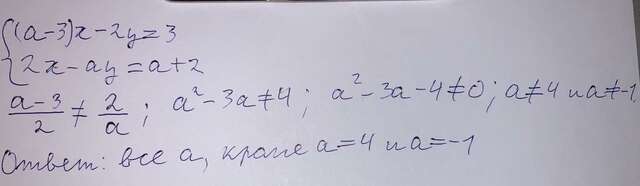 {(a-3)x-2y=3
{2x-ay=a+2
(a-3)/2 ≠ 2/a; a²-3a≠4; a²-3a-4≠0; a≠4 и a≠-1
Ответ: все a, кроме a=4 и a=-1